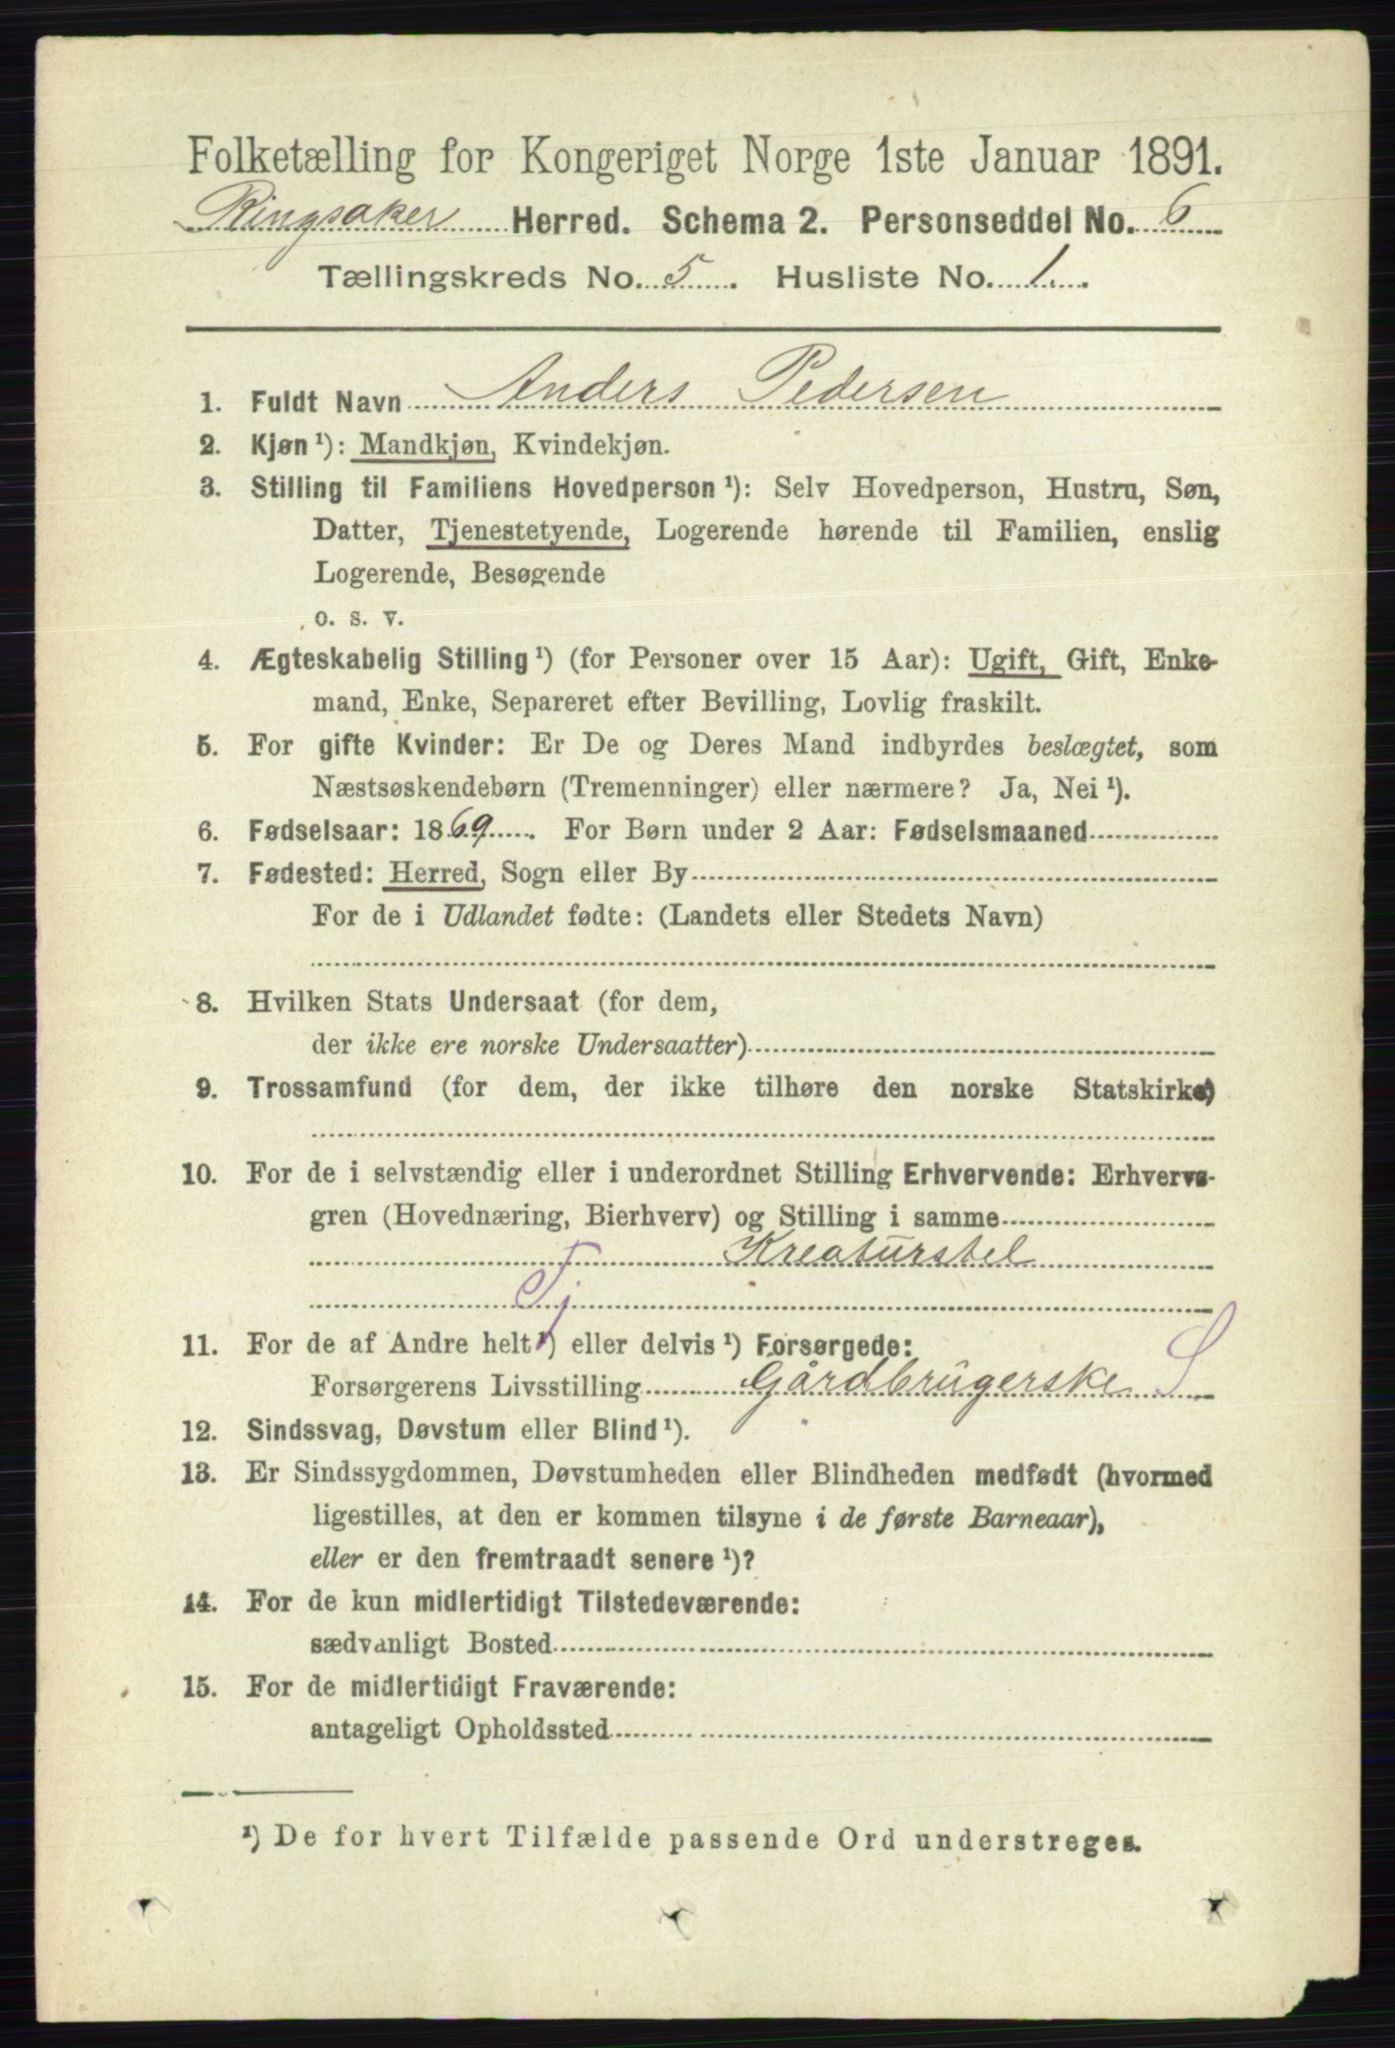 Folketælling for Kongeriget Norge 1ste Januar 1891.
Ringsaker Herred. Schema 2. Personseddel No. 6
Tællingskreds No. 5. Husliste No. 1.
1. Fuldt Navn Anders Pedersen
2. Kjøn ¹): Mandkjøn, Kvindekjøn.
3. Stilling til Familiens Hovedperson ¹): Selv Hovedperson, Hustru, Søn,
Datter, Tjenestetyende, Logerende hørende til Familien, enslig
Logerende, Besøgende
o. s. v.
4. Ægteskabelig Stilling ¹) (for Personer over 15 Aar): Ugift, Gift, Enke-
mand, Enke, Separeret efter Bevilling, Lovlig fraskilt.
5. For gifte Kvinder: Er De og Deres Mand indbyrdes beslægtet, som
Næstsøskendebørn (Tremenninger) eller nærmere? Ja, Nei ¹).
6. Fødselsaar: 1869. For Børn under 2 Aar: Fødselsmaaned
7. Fødested: Herred, Sogn eller By
For de i Udlandet fødte: (Landets eller Stedets Navn)
8. Hvilken Stats Undersaat (for dem,
der ikke ere norske Undersaatter)
9. Trossamfund (for dem, der ikke tilhøre den norske Statskirke)
10. For de i selvstændig eller i underordnet Stilling Erhvervende: Erhvervs-
gren (Hovednæring, Bierhverv) og Stilling i samme
Kreaturstel
Tj
11. For de af Andre helt ¹) eller delvis ¹) Forsørgede:
Forsørgerens Livsstilling Gårdbrugerske S
12. Sindssvag, Døvstum eller Blind ¹).
13. Er Sindssygdommen, Døvstumheden eller Blindheden medfødt (hvormed
ligestilles, at den er kommen tilsyne i de første Barneaar),
eller er den fremtraadt senere ¹)?
14. For de kun midlertidigt Tilstedeværende:
sædvanligt Bosted
15. For de midlertidigt Fraværende:
antageligt Opholdssted
¹) De for hvert Tilfælde passende Ord understreges.